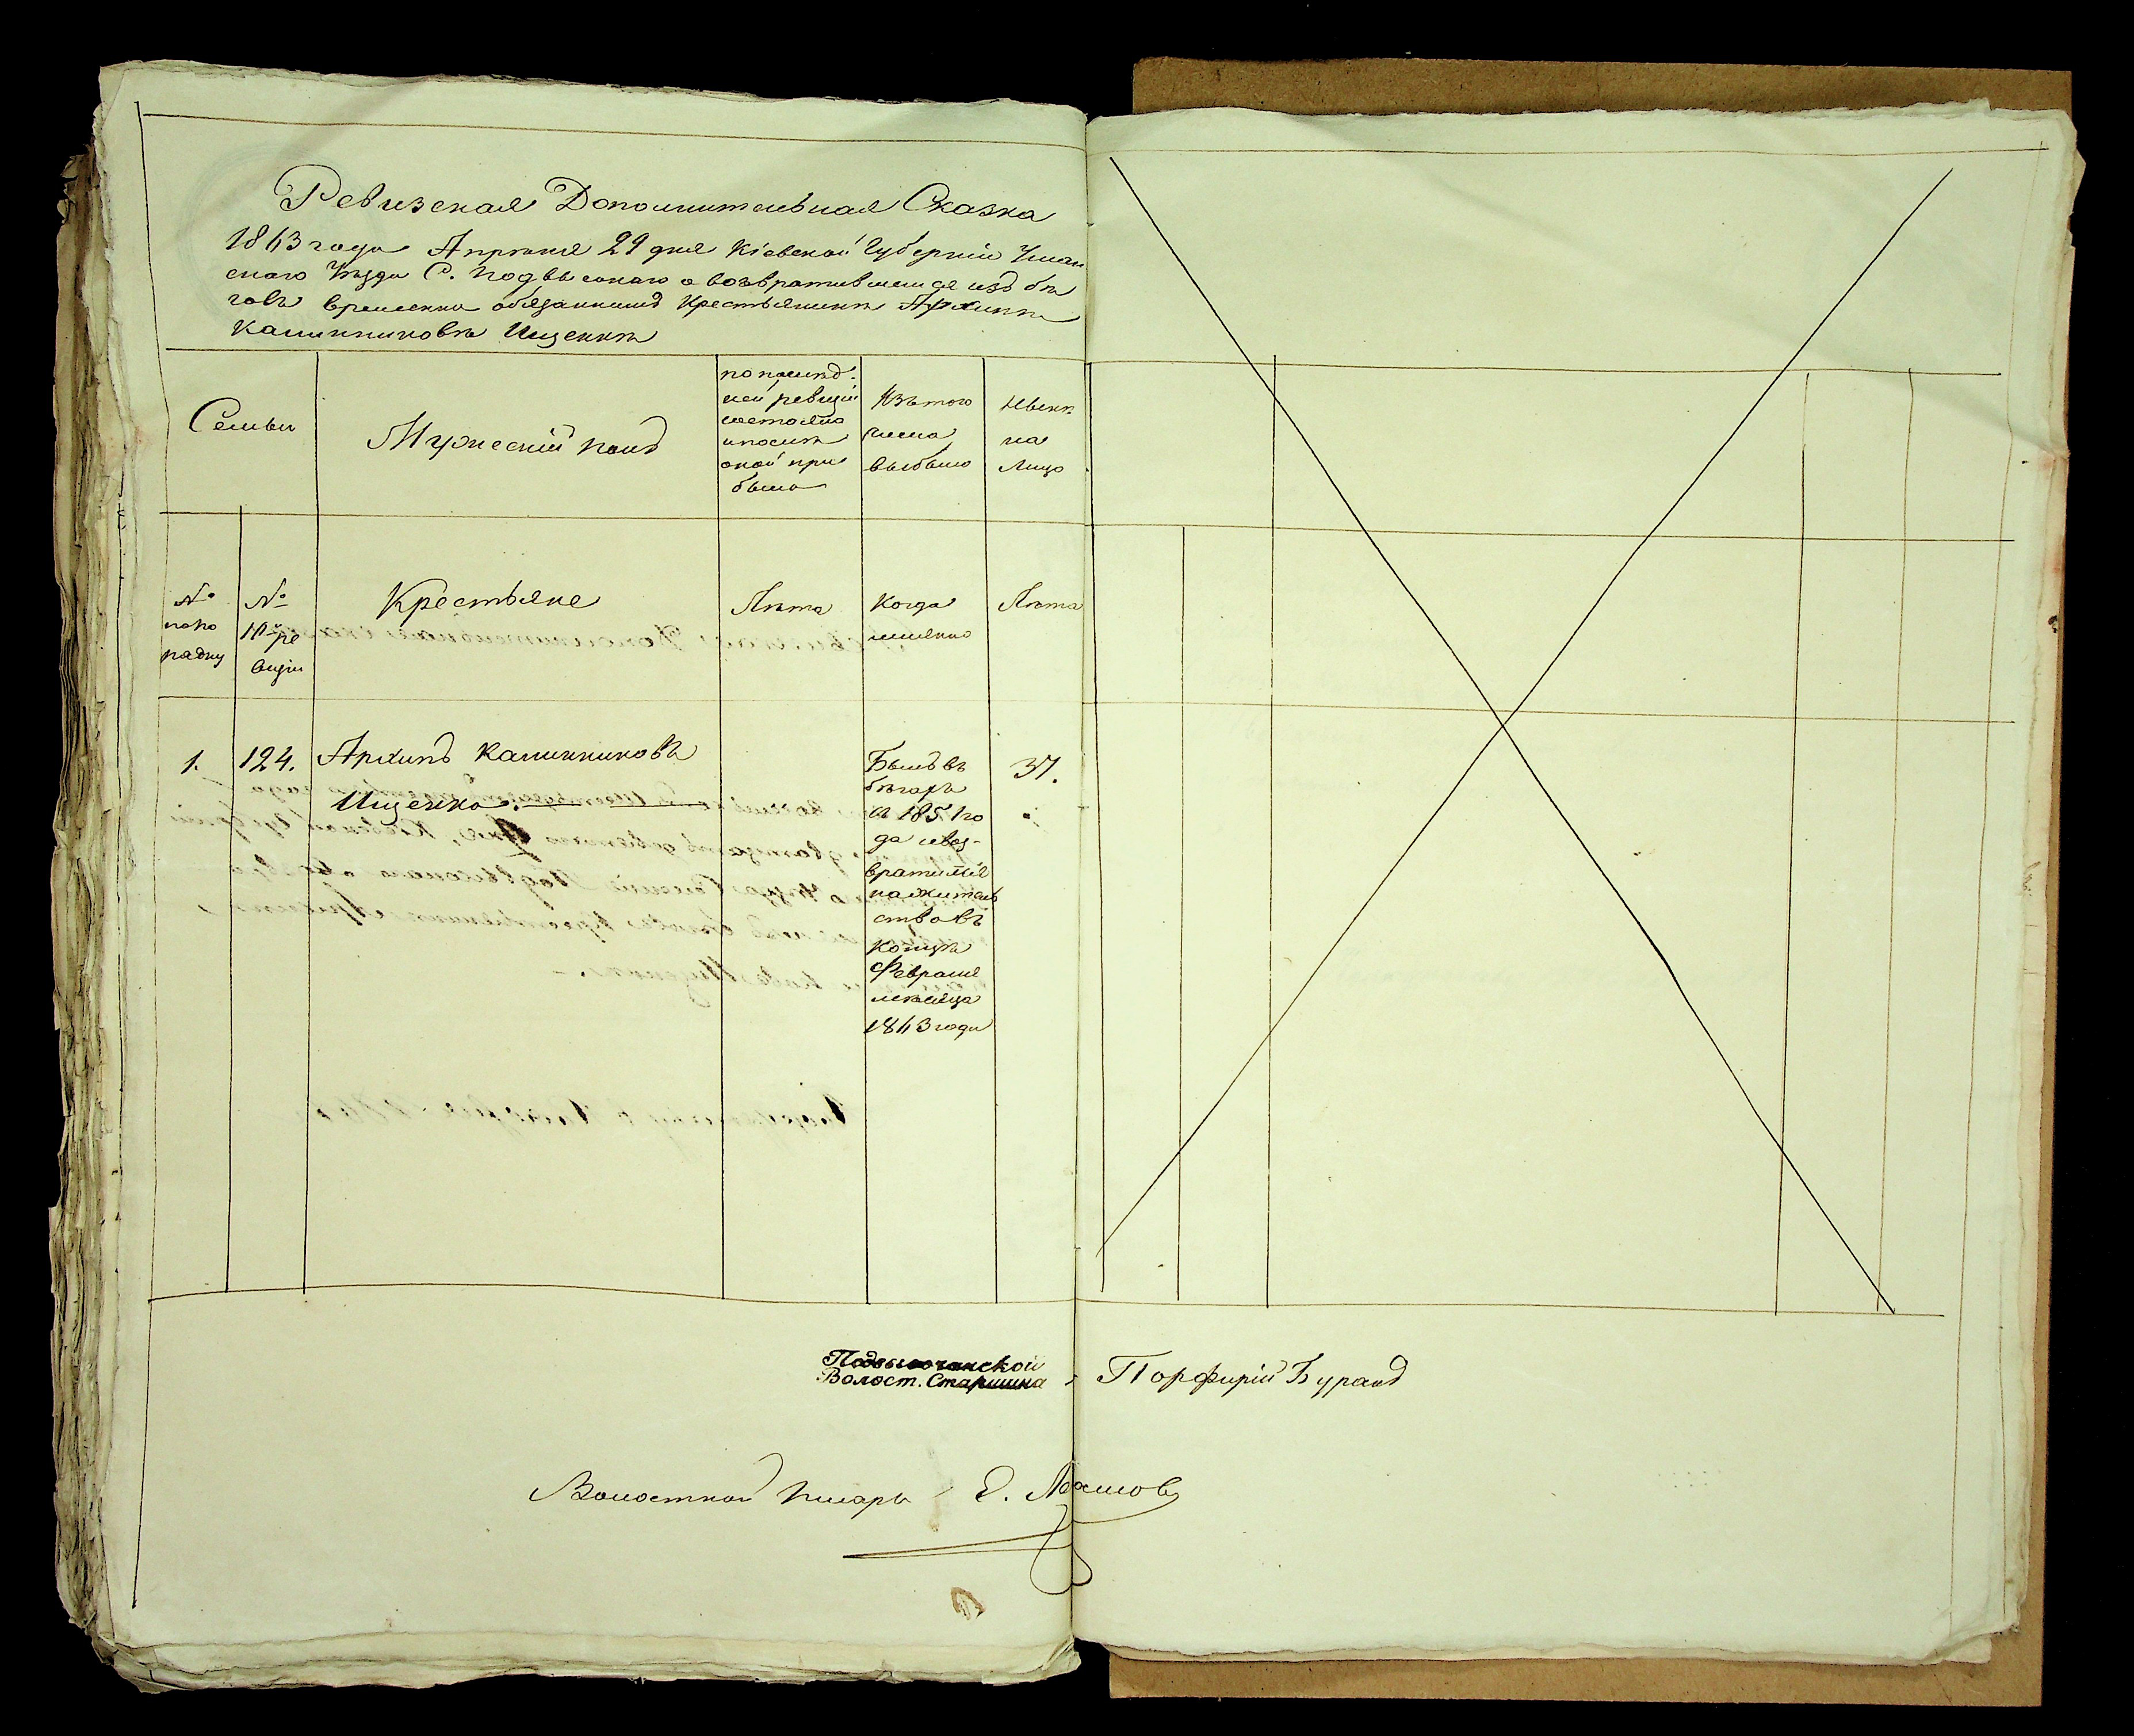 Ревизская Дополнительная Сказка
1863 года Апрѣля 29 дня Кіевской Губерніи Уман
скаго Уѣзда С. Подвысокаго о возвратившемся изъ бѣ
говъ временно обязанномъ Крестьянинѣ Архипѣ
Калинниковѣ Ищенкѣ
Семьи
Мужескій полъ
по послѣд-
ней ревизіи
состояло
и послѣ
оной при
было
Изъ того
числа
выбыло
Нынѣ
на
Лицо
№
по по
рядку
№
10й ре
визіи
Крестьяне
Лѣта
Когда
именно
Лѣта
1.
124.
Архипъ Калинниковъ
Ищенко.
Былъ въ
бѣгахъ
съ 185 го
да и воз-
вратился
на житель
ство въ
концѣ
Февраля
мѣсяца
1863 года
37.
Подвысочанской
Волост. Старшина
Порфирій Буракъ
Волостной писарь Е.